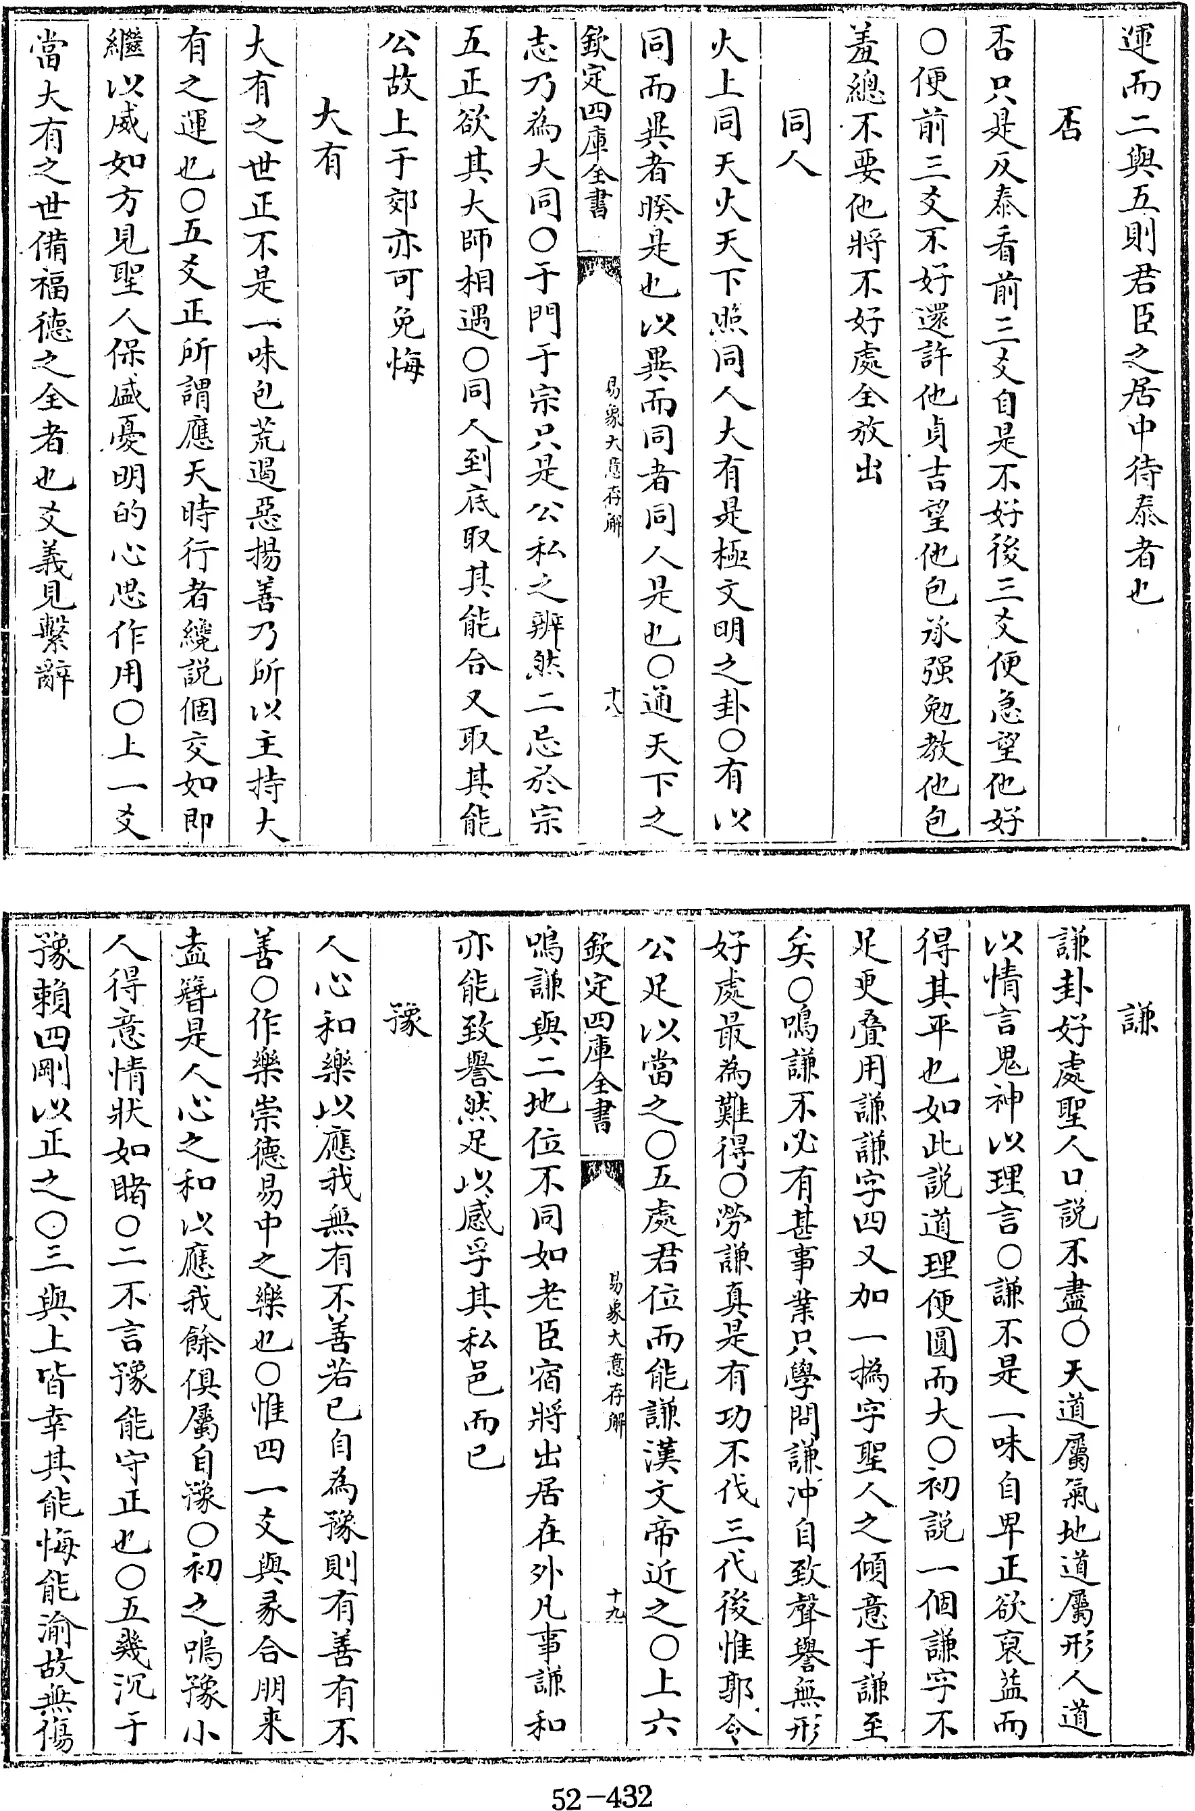 運而二與五則君臣之居中待泰者也
否
否只是反泰看前三爻自是不好後三爻便急望他好
○便前三爻不好還許他貞吉望他包承强勉教他包
羞總不要他將不好處全放出
同人
火上同天火天下照同人大有是極文明之卦○有以
同而異者睽是也以異而同者同人是也○通天下之
欽定四庫全書
易象大意存解
十八
志乃為大同○于門于宗只是公私之辨然二忌於宗
五正欲其大師相遇○同人到底取其能合又取其能
公故上于郊亦可免悔
大有
大有之世正不是一味包荒遏惡揚善乃所以主持大
有之運也○五爻正所謂應天時行者纔説個交如即
繼以威如方見聖人保盛憂明的心思作用○上一爻
當大有之世備福德之全者也爻義見繫辭
謙
謙卦好處聖人口説不盡○天道屬氣地道屬形人道
以情言鬼神以理言○謙不是一味自卑正欲裒益而
得其平也如此説道理便圓而大○初説一個謙字不
足更叠用謙謙字四又加一撝字聖人之傾意于謙至
矣○鳴謙不必有甚事業只學問謙冲自致聲譽無形
好處最為難得○勞謙真是有功不伐三代後惟郭令
公足以當之○五處君位而能謙漢文帝近之○上六
欽定四庫全書
易象大意存解
十九
鳴謙與二地位不同如老臣宿將出居在外凡事謙和
亦能致譽然足以感孚其私邑而已
豫
人心和樂以應我無有不善若已自為豫則有善有不
善○作樂崇德易中之樂也○惟四一爻與彖合朋来
盍簪是人心之和以應我餘俱屬自豫○初之鳴豫小
人得意情狀如睹○二不言豫能守正也○五幾沉于
豫賴四剛以正之○三與上皆幸其能悔能渝故無傷
52-432